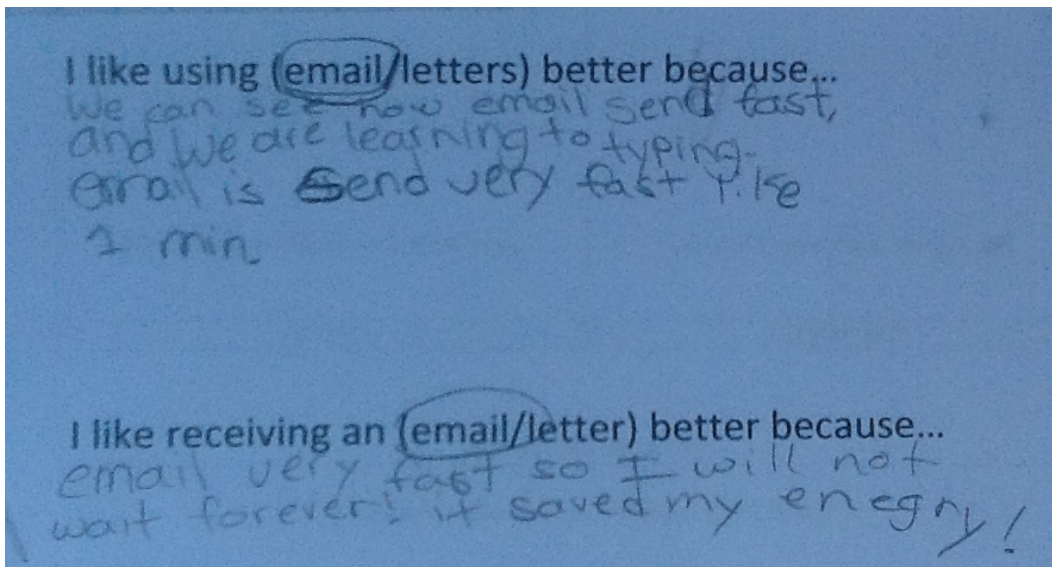 I like using (email/letters) better because...
We can see how email send fast,
and we are learning to typing.
email is Send very fast like
1 min
I like receiving an (email/letter) better because...
email very fast so I will not
wait forever! it saved my enegry!